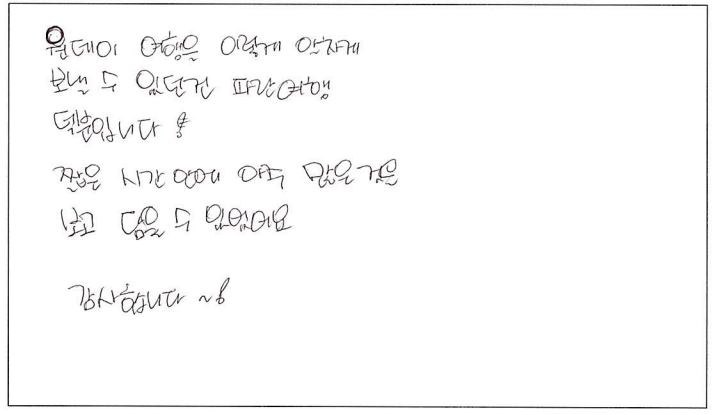 원데이 여행을 이렇게 알차게
보낼 수 있던건 파란여행
덕분입니다!
짧은 시간 안에 아주 많은것을
보고 담을 수 있었어요
감사합니다~!